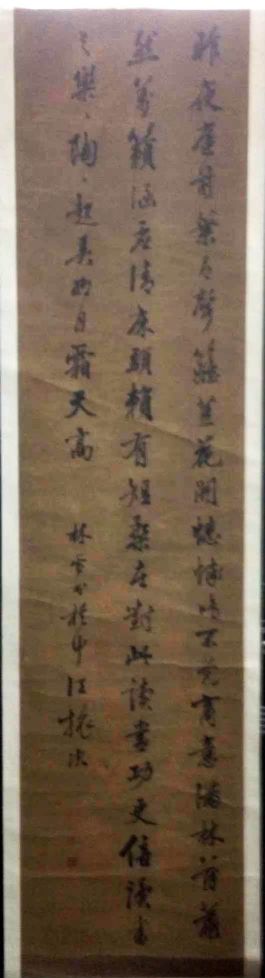 昨夜庭前葉有聲籬豆花開蟋蟀鳴不覺商意滿林薄蕭
然萬籟涵虛清床頭賴有短檠在對此讀書功更倍讀書
之樂〻陶〻起弄明月霜天高